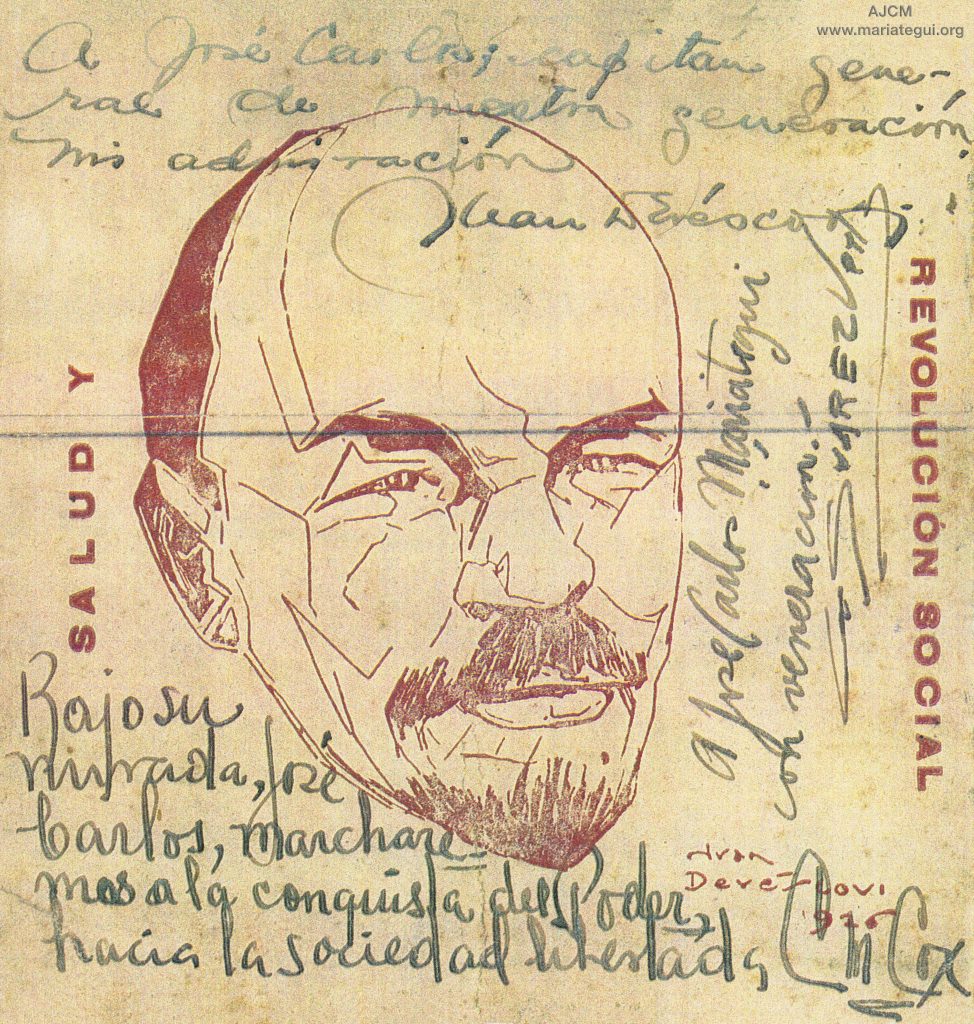 AJCM
www.mariategui.org
A José Carlos, capitán gene-
ral de nuestra generación,
mi admiración
Juan
SALUD Y
REVOLUCIÓN SOCIAL
A José Carlos Mariategui
con veneración.
Bajo su
mirada, José
Carlos, marchare-
mos a la conquista del Poder,
hacia la sociedad libertada,
Cox
1926